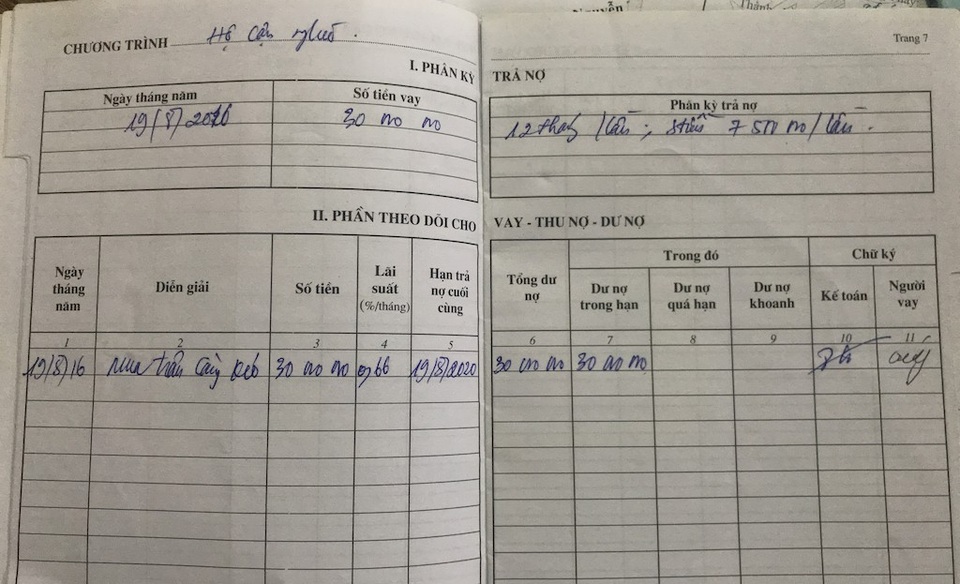 Nguyễn
CHƯƠNG TRÌNH Hộ cận nghèo.
Trang 7
I. PHÂN KỲ TRẢ NỢ
Ngày tháng năm Số tiền vay Phân kỳ trả nợ
19/8/2016 30 000 000 12 tháng/lần; Số tiền 7 500 000/lần.
II. PHẦN THEO DÕI CHO VAY - THU NỢ - DƯ NỢ
Ngày tháng năm Diễn giải Số tiền Lãi suất (%/tháng) Hạn trả nợ cuối cùng Tổng dư nợ Trong đó Chữ ký
Dư nợ trong hạn Dư nợ quá hạn Dư nợ khoanh Kế toán Người vay
1 2 3 4 5 6 7 8 9 10 11
19/8/16 Mua trâu cày kéo 30 000 000 0,66 19/8/2020 30 000 000 30 000 000